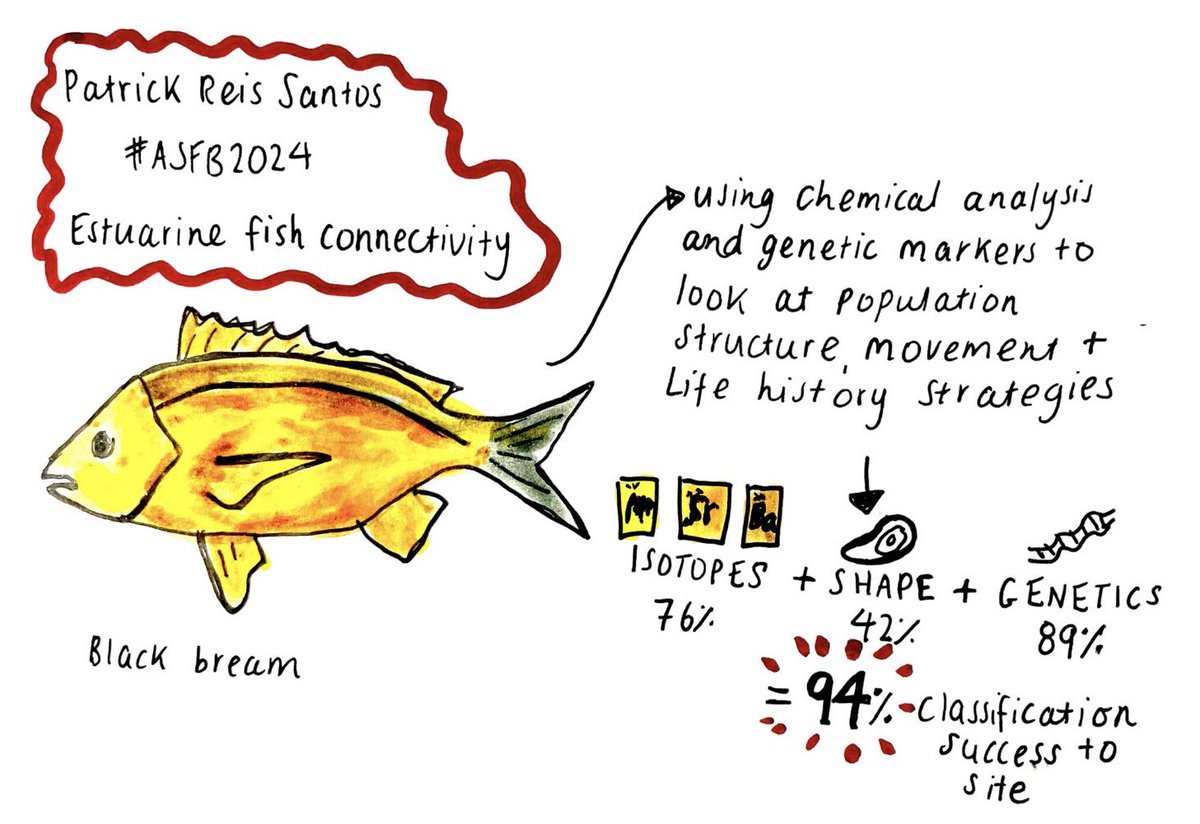 Patrick Reis Santos
#ASFB2024
Estuarine fish connectivity
using chemical analysis
and genetic markers to
look at population
structure, movement +
Life history strategies
Mn Sr Ba
ISOTOPES + SHAPE + GENETICS
76% 42% 89%
= 94% classification
success to
site
Black bream